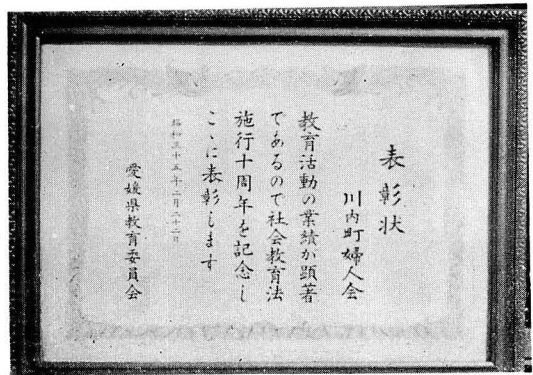 表彰状
川内町婦人会
教育活動の業績が顕著
であるので社会教育法
施行十周年を記念し
こゝに表彰します
昭和三十五年二月二十二日
愛媛県教育委員会